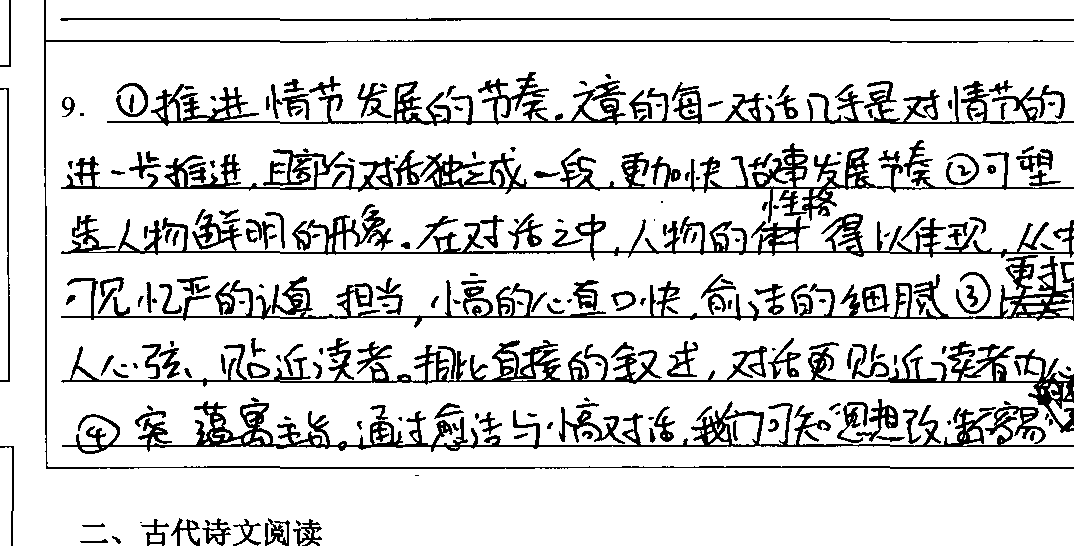 9. ①推进情节发展的节奏。文章的每一对话几乎是对情节的
进一步推进,且部分对话独立成一段,更加快了故事发展节奏②可塑
性格
造人物鲜明的形象。在对话之中,人物的 得以体现,从中
可见忆严的认真 担当,小高的心直口快,俞洁的细腻③
更扣
人心弦,贴近读者。相比直接的叙述,对话更贴近读者内心
④突 蕴寓主旨。通过俞洁与小高对话,我们可知思想改造容易
二、古代诗文阅读